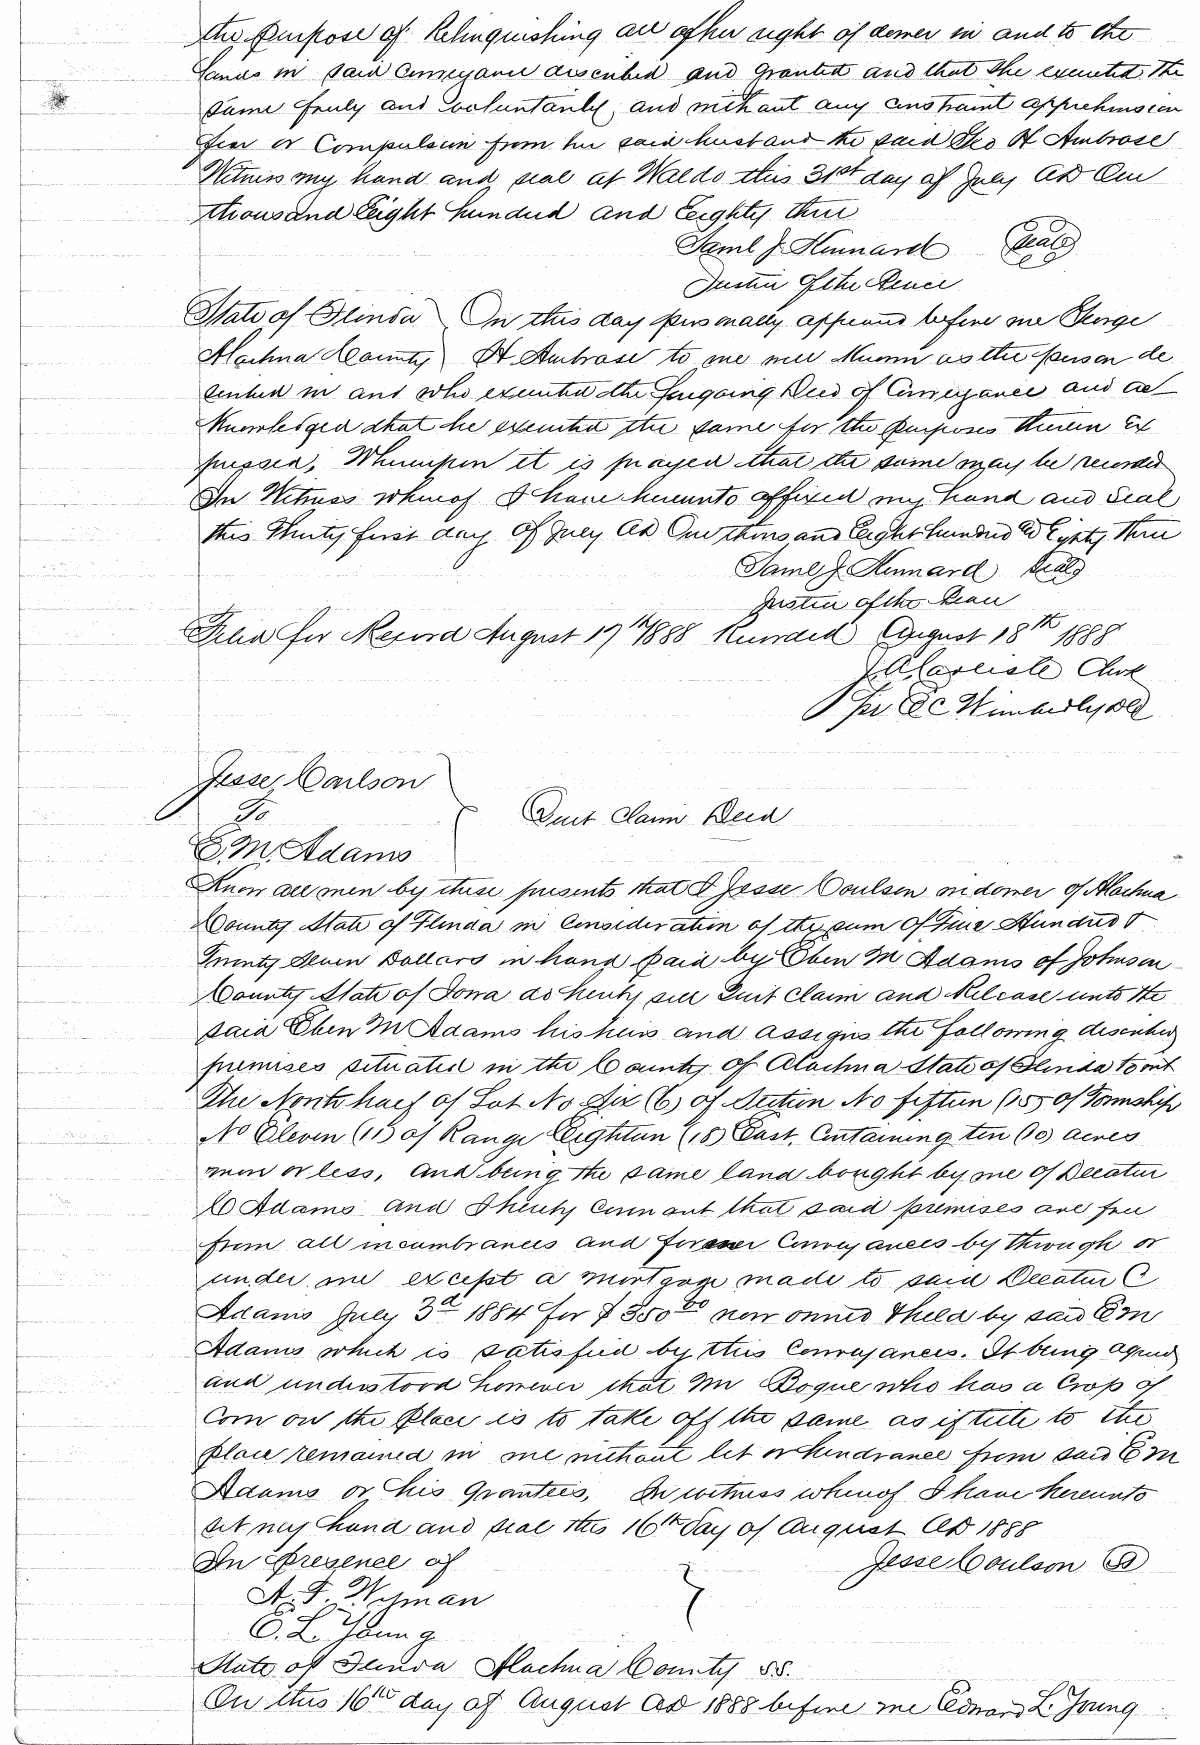 the purpose of Relinquishing all of her right of dower in and to the
Lands in said Conveyance discribed and granted and that she executed the
same freely and voluntarily, and without any constraint apprehension
fear or Compulsion from her said husband the said Geo H Ambrose
Witness my hand and seal at Waldo this 31st day of July AD One
thousand Eight hundred and Eighty three
Saml J. Kennard (Seal)
Justice of the Peace
State of Florida On this day personally appeared before me George
Alachua County H Ambrose to me well Known as the person de
scribed in and who executed the foregoing Deed of Conveyance and ac
Knowledged that he executed the same for the purposes therein Ex
pressed, Whereupon it is prayed that the same may be recorded
In Witness whereof I have hereunto affixed my hand and Seal
this Thirty first day of July AD One thousand Eight hundred & Eighty Three
Saml J Kennard Seal
Justice of the Peace
Filed for Record August 17th 1888 Recorded August 18th 1888
J. A. Carlisle Clerk
Per E C Wimberly DC
Jesse Coulson
To
Quit Claim Deed
E. M. Adams
Know all men by these presents that I Jesse Coulson widower of Alachua
County State of Florida in Consideration of the sum of Five Hundred &
Twenty Seven Dollars in hand paid by Eben M Adams of Johnson
County State of Iowa do hereby sell Quit Claim and Release unto the
said Eben M Adams his heirs and assigns the following described
premises situated in the County of Alachua State of Florida to wit
The North half of Lot No Six (6) of Section No fifteen (15) of Township
No Eleven (11) of Range Eighteen (18) East, Containing ten (10) acres
more or less, and being the same land bought by me of Decatur
C Adams and I hereby Covenant that said premises are free
from all incumbrances and former Conveyances by through or
under me except a mortgage made to said Decatur C
Adams July 3d 1884 for $350 00 now owned & held by said E M
Adams which is satisfied by this Conveyances. It being agreed
and understood however that Mr Bogue who has a Crop of
Corn on the place is to take off the same as if title to the
place remained in me without let or hindrance from said E M
Adams or his grantees, In witness whereof I have hereunto
set my hand and seal this 16th day of August AD 1888
In Presence of Jesse Coulson
A. F. Wyman
E. L. Young
State of Florida Alachua County S.S.
On this 16th day of August AD 1888 before me Edward L. Young